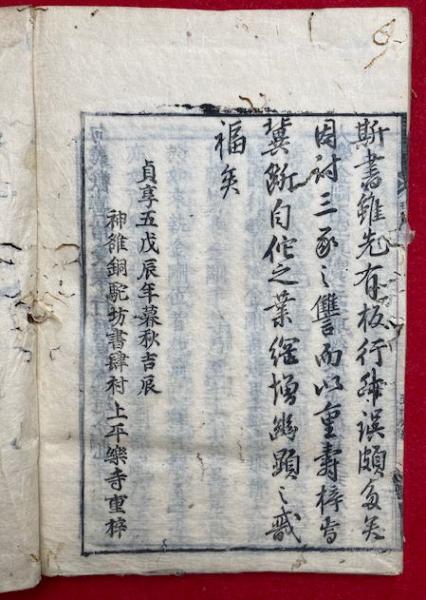 斯書雖先有板行鋟誤頗多矣
因討三豕之讐而以重壽梓焉
冀斷自佗之業經增幽顯之
福矣
貞享五戊辰年暮秋吉辰
神雒銅駝坊書肆村上平樂寺重梓